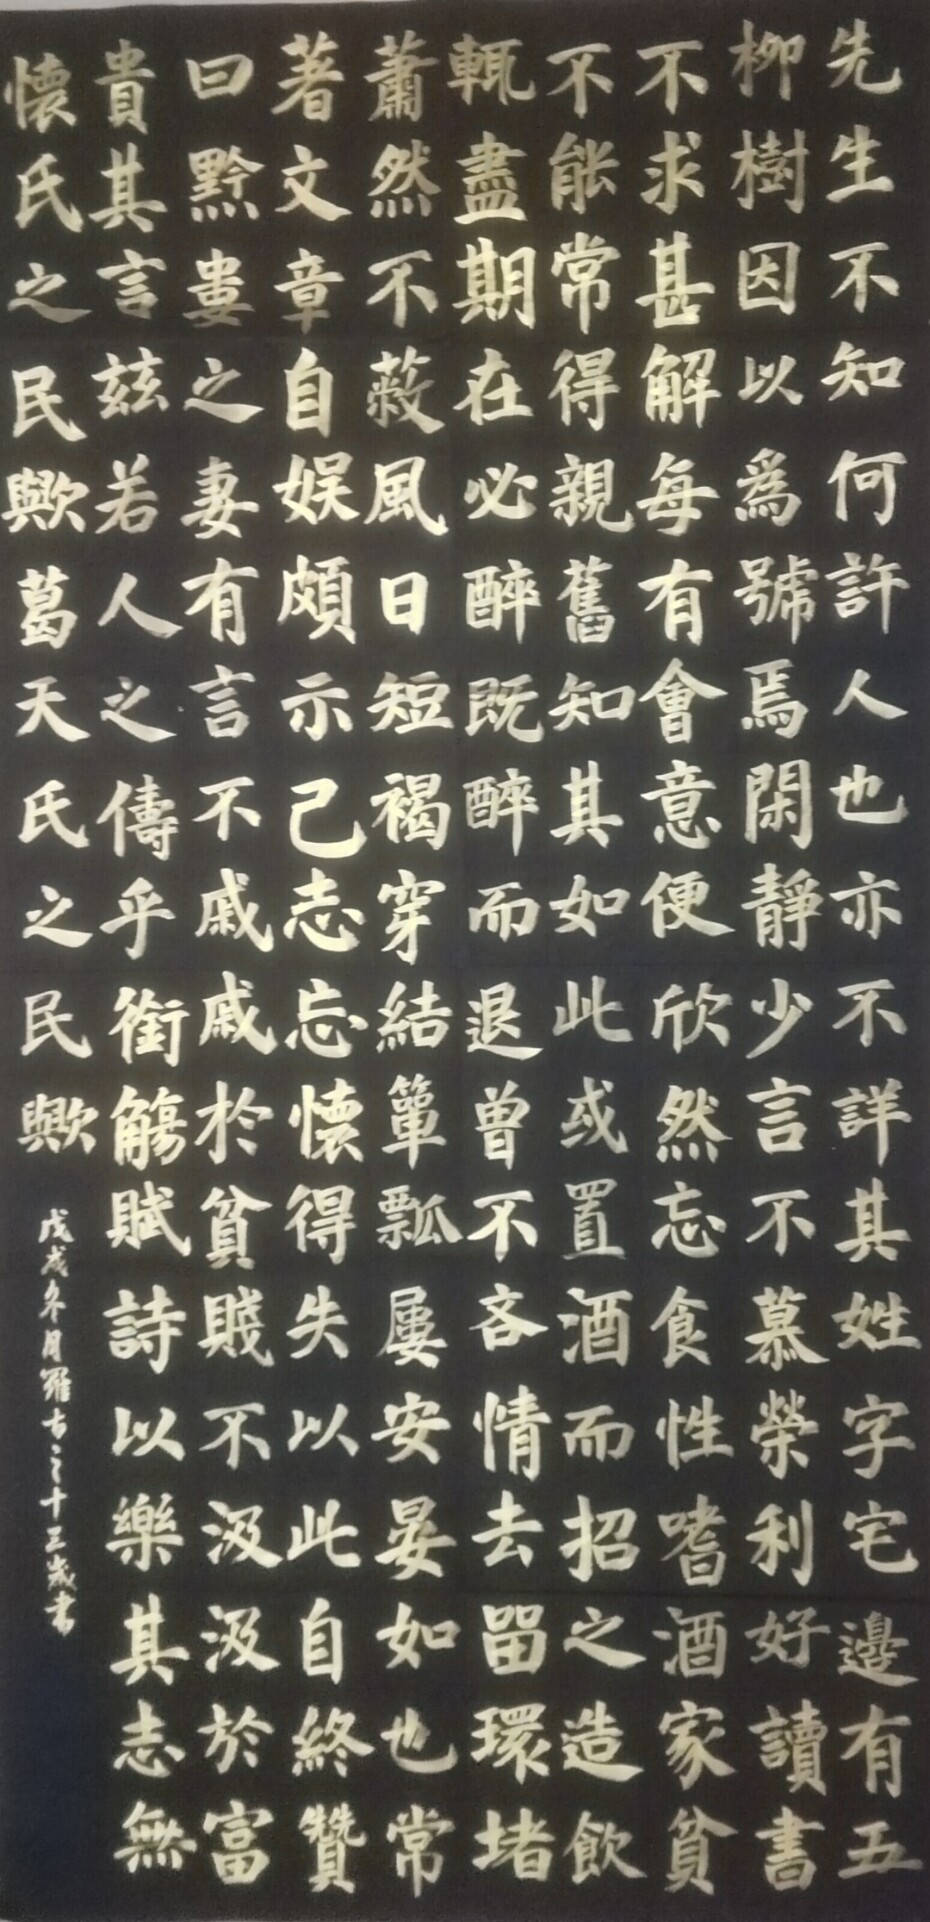 先生不知何許人也亦不詳其姓字宅邊有五
柳樹因以為號焉閑靜少言不慕榮利好讀書
不求甚解每有會意便欣然忘食性嗜酒家貧
不能常得親舊知其如此或置酒而招之造飲
輒盡期在必醉既醉而退曾不吝情去留環堵
蕭然不蔽風日短褐穿結簞瓢屢安晏如也常
著文章自娛頗示己志忘懷得失以此自終贊
曰黔婁之妻有言不戚戚於貧賤不汲汲於富
貴其言茲若人之儔乎銜觴賦詩以樂其志無
懷氏之民歟葛天氏之民歟
戊戌冬月羅古之十三歲書